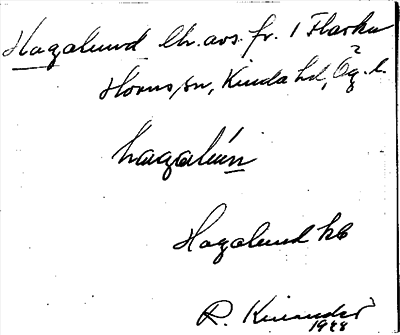 Hagalund lh. avs. fr. 1 Flarka
Horns sn, Kinda hd, Ög. l.
hagalún
Hagalund hb
R. Kinander
1928